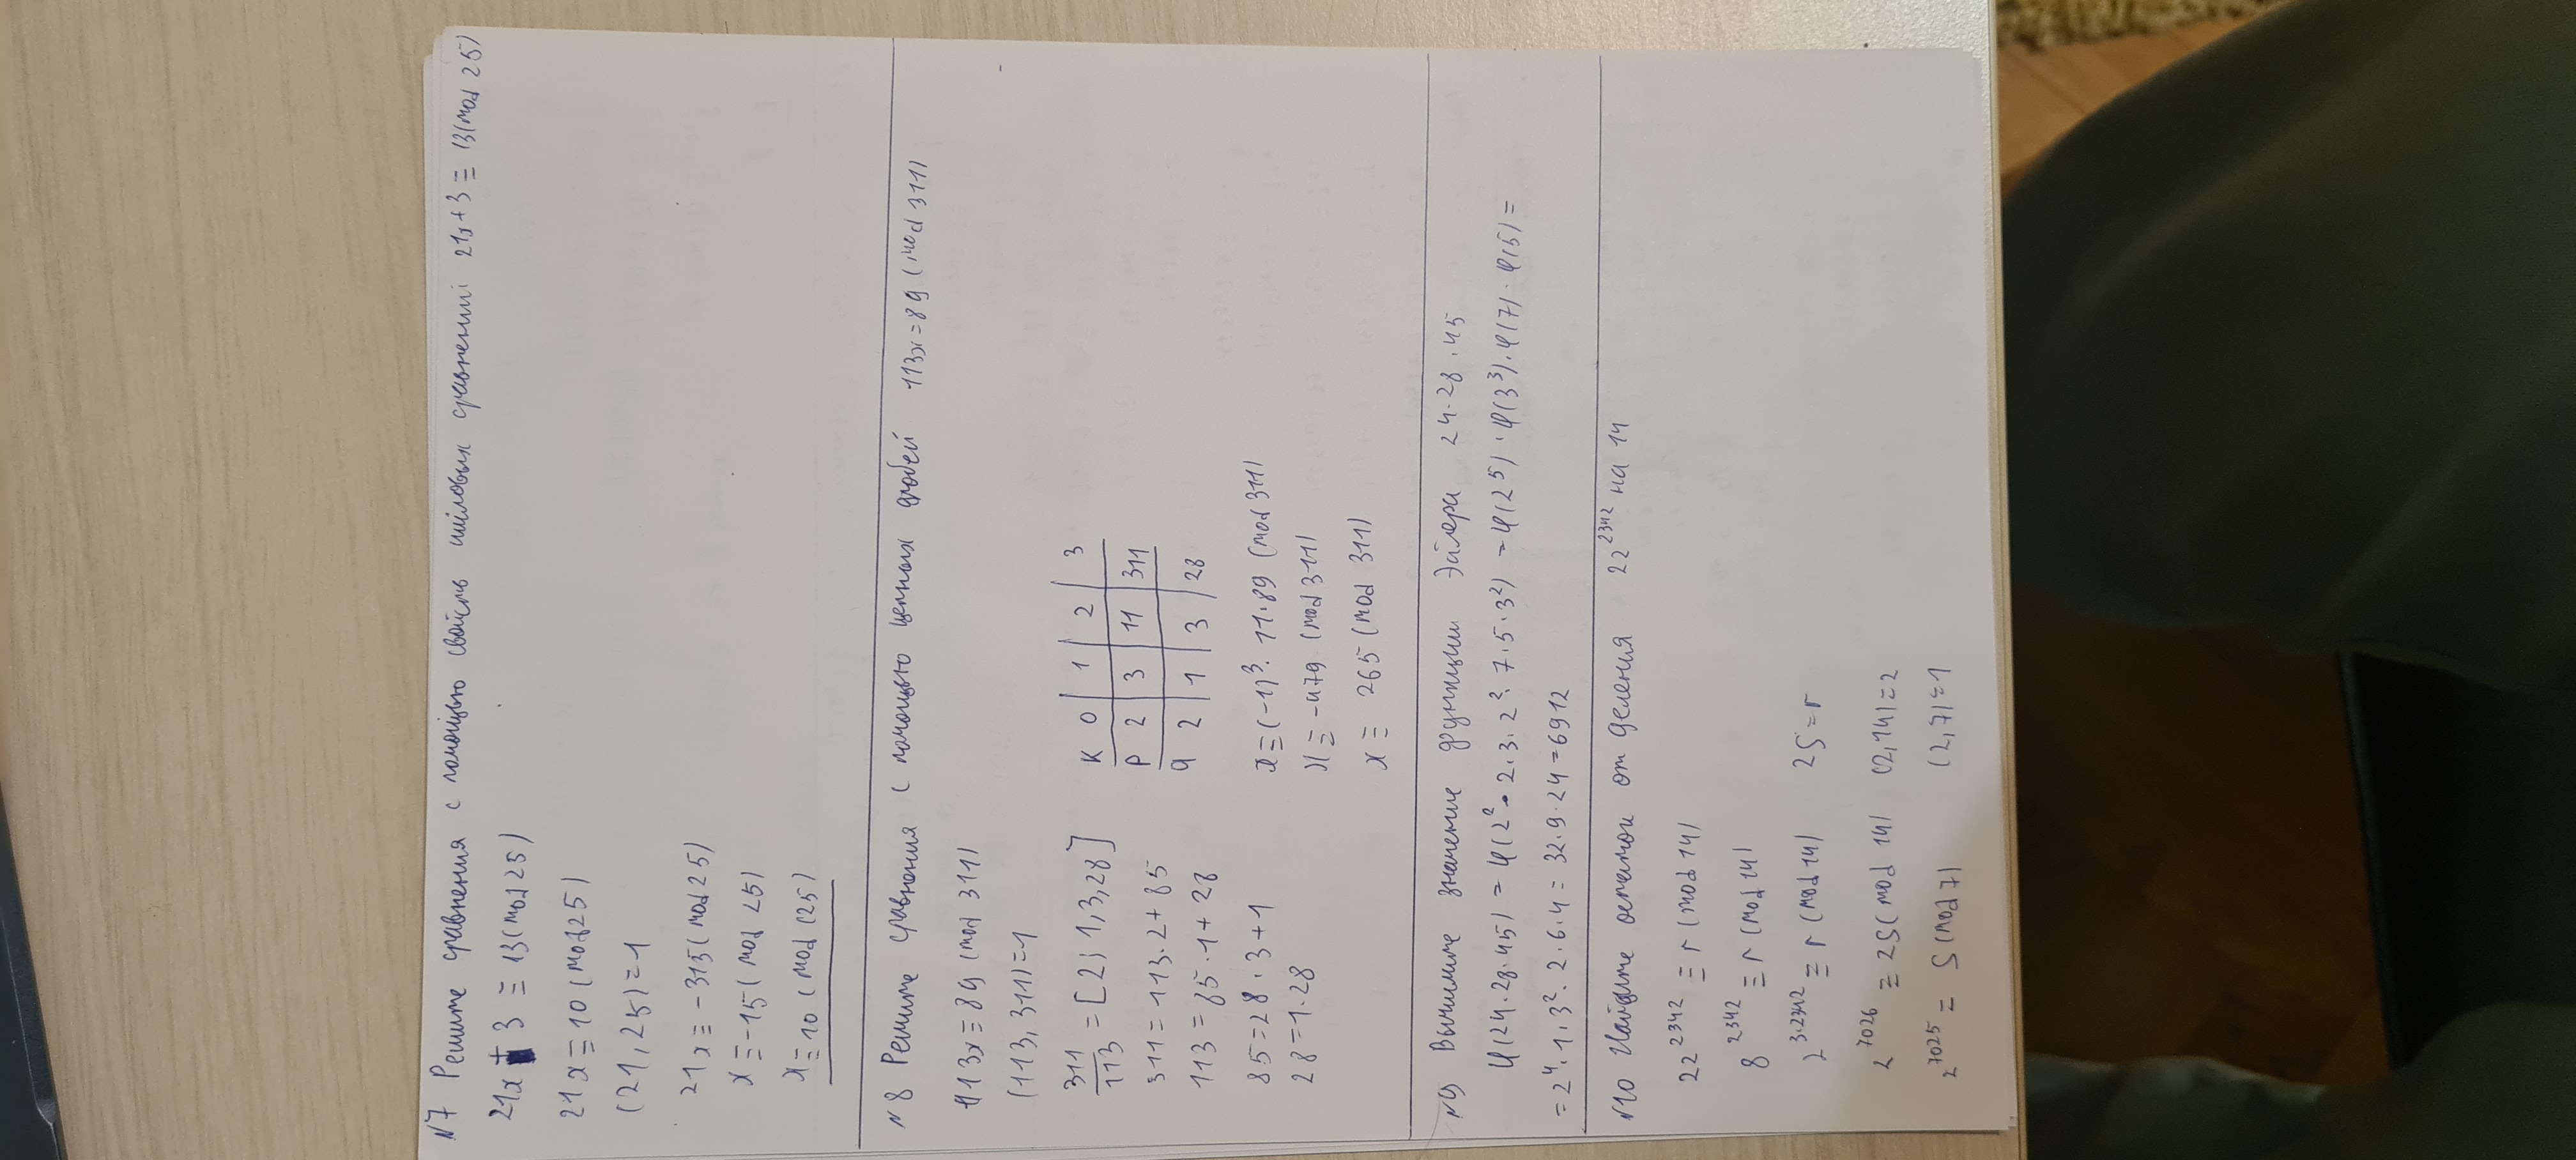 №7 Решите сравнения с помощью свойств числовых сравнений: 21x+3 ≡ 13(mod 25)
21x + 3 ≡ 13(mod 25)
21x ≡ 10 (mod 25)
(21, 25)=1
21x ≡ -315(mod 25)
x ≡ -15( mod 25)
x ≡ 10 ( mod (25)
№8 Решите сравнения с помощью цепных дробей 113x=89 (mod 311)
113x ≡ 89 (mod 311)
(113, 311)=1
311/113 = [2; 1,3,28]
311=113·2+85
113=85·1+28
85=28·3+1
28=1·28
K 0 1 2 3
P 2 3 11 311
q 2 1 3 28
x ≡ (-1)³· 11·89 (mod 311)
x ≡ -979 (mod 311)
x ≡ 265 (mod 311)
№9 Вычислите значение функции Эйлера 24·28·45
φ(24·28·45) = φ(2²·2·3·2²·7·5·3²) = φ(2⁵)·φ(3³)·φ(7)·φ(5)=
=2⁴·1·3²·2·6·4= 32·9·24=6912
№10 Найдите остаток от деления 22²³⁴² на 14
22²³⁴² ≡ r (mod 14)
8²³⁴² ≡ r (mod 14)
2³·²³⁴² ≡ r (mod 14) 2S=r
2⁷⁰²⁶ ≡ 2S( mod 14) (2,14)=2
2⁷⁰²⁵ = S(mod 7) (2,7)=1